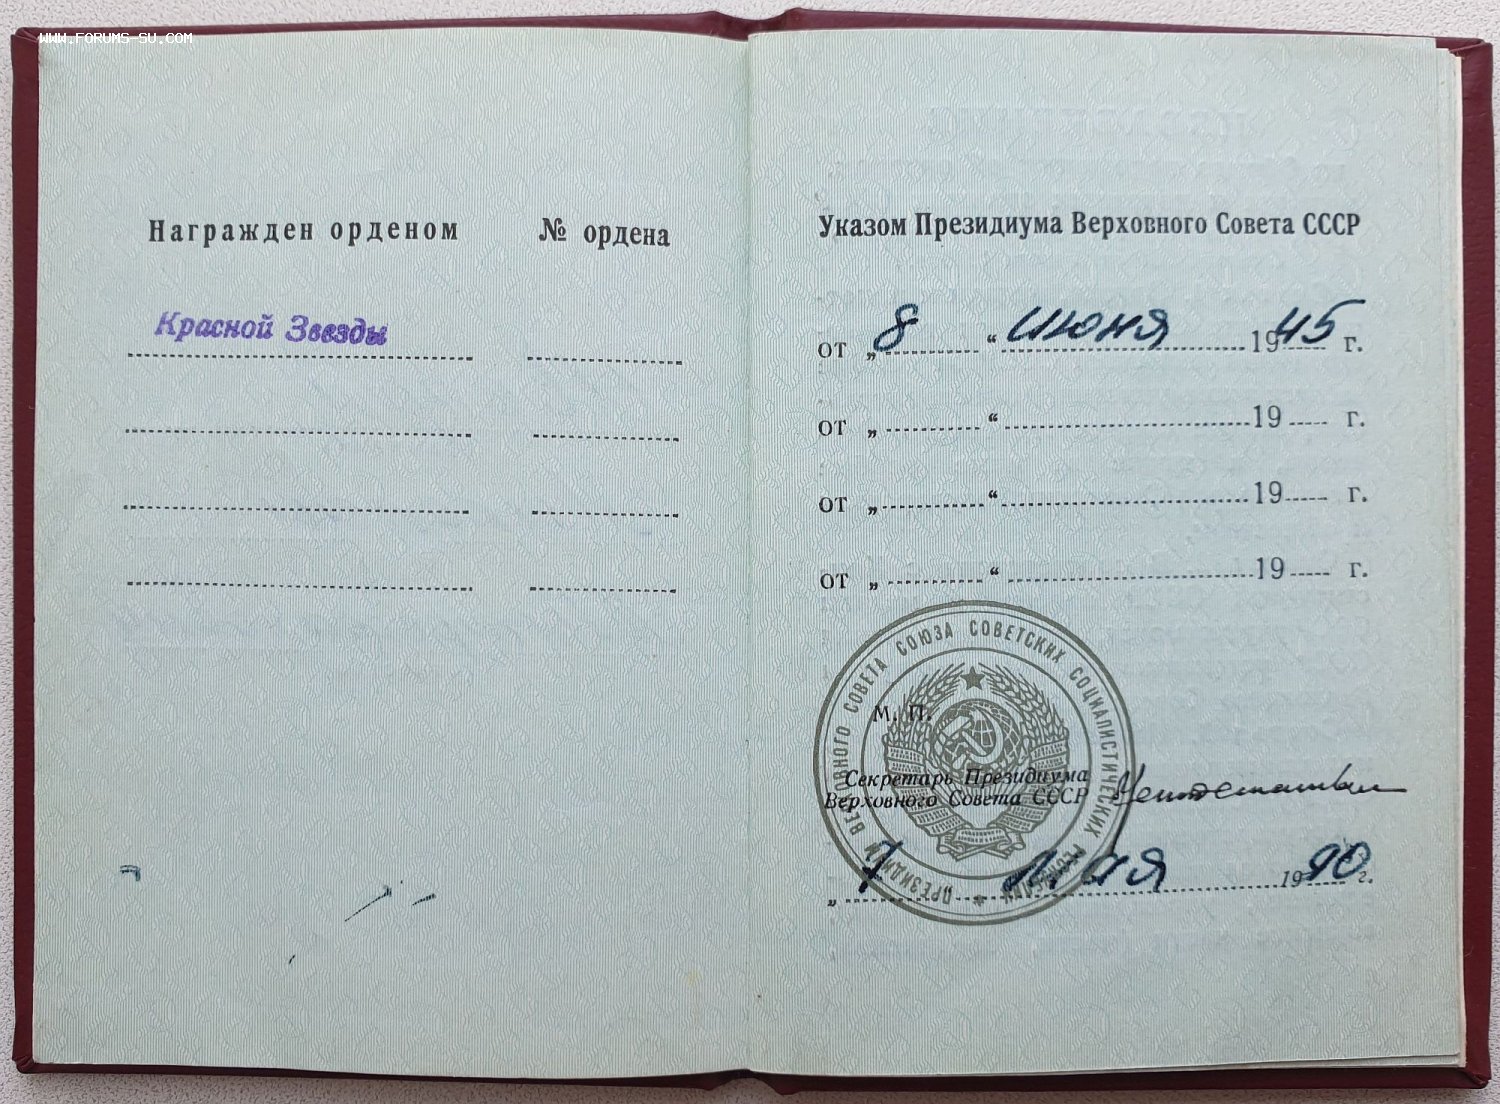 WWW.FORUMS-SU.COM
Награжден орденом № ордена
Красной Звезды
Указом Президиума Верховного Совета СССР
от „8“ июня 1945 г.
от „ “ 19 г.
от „ “ 19 г.
от „ “ 19 г.
ПРЕЗИДИУМ ВЕРХОВНОГО СОВЕТА СОЮЗА СОВЕТСКИХ СОЦИАЛИСТИЧЕСКИХ РЕСПУБЛИК
М. П.
Секретарь Президиума
Верховного Совета СССР
„7 мая 1990 г.